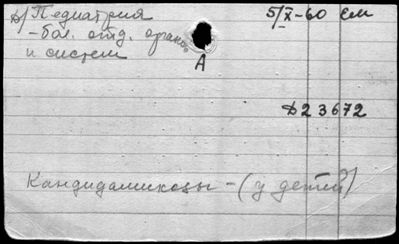 Д/ Педиатрия
- бол. отд. органов
и систем
А
5/X-60 ем
Д23672
Кандидамикозы - (у детей)